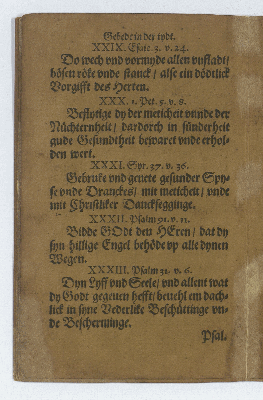 Gebede in der tydt.
XXIX. Esaie 3. v. 24.
Do wech vnd vormyde allen vnfladt/
bösen röke vnde stanck / alse ein dödtlick
Vorgifft des Herten.
XXX. 1. Pet. 5. v. 8.
Beflytige dy der meticheit vnnde der
Nüchternheit / dardorch in sünderheit
gude Gesundtheit bewaret vnde erhol-
den wert.
XXXI. Syr. 37. v. 36.
Gebruke vnd genete gesunder Spy-
se vnde Dranckes / mit meticheit / vnde
mit Christliker Dancksegginge.
XXXII. Psalm 91. v. 11.
Bidde GOdt den HEren / dat dy
syn hillige Engel behöde vp alle dynen
Wegen.
XXXIII. Psalm 31. v. 6.
Dyn Lyff vnd Seele / vnd allent wat
dy Godt gegeuen hefft / beuehl em dach-
lick in syne Vederlike Beschüttinge vn-
de Bescherminge.
Psal.